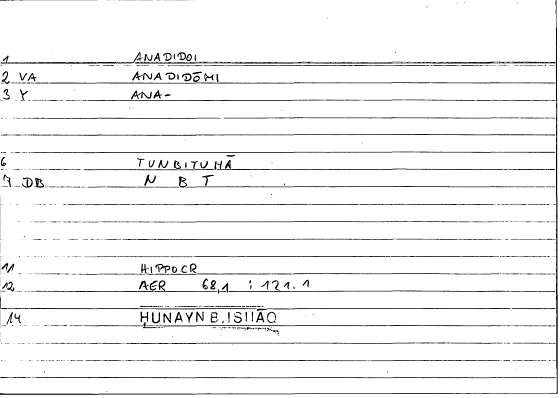 1 ANADIDOI
2 VA ANADIDŌMI
3 Y ANA-
6 TUNBITUHĀ
7 DB N B T
11 HIPPOCR
12 AER 68,1 : 121.1
14 ḤUNAYN B. ISḤĀQ